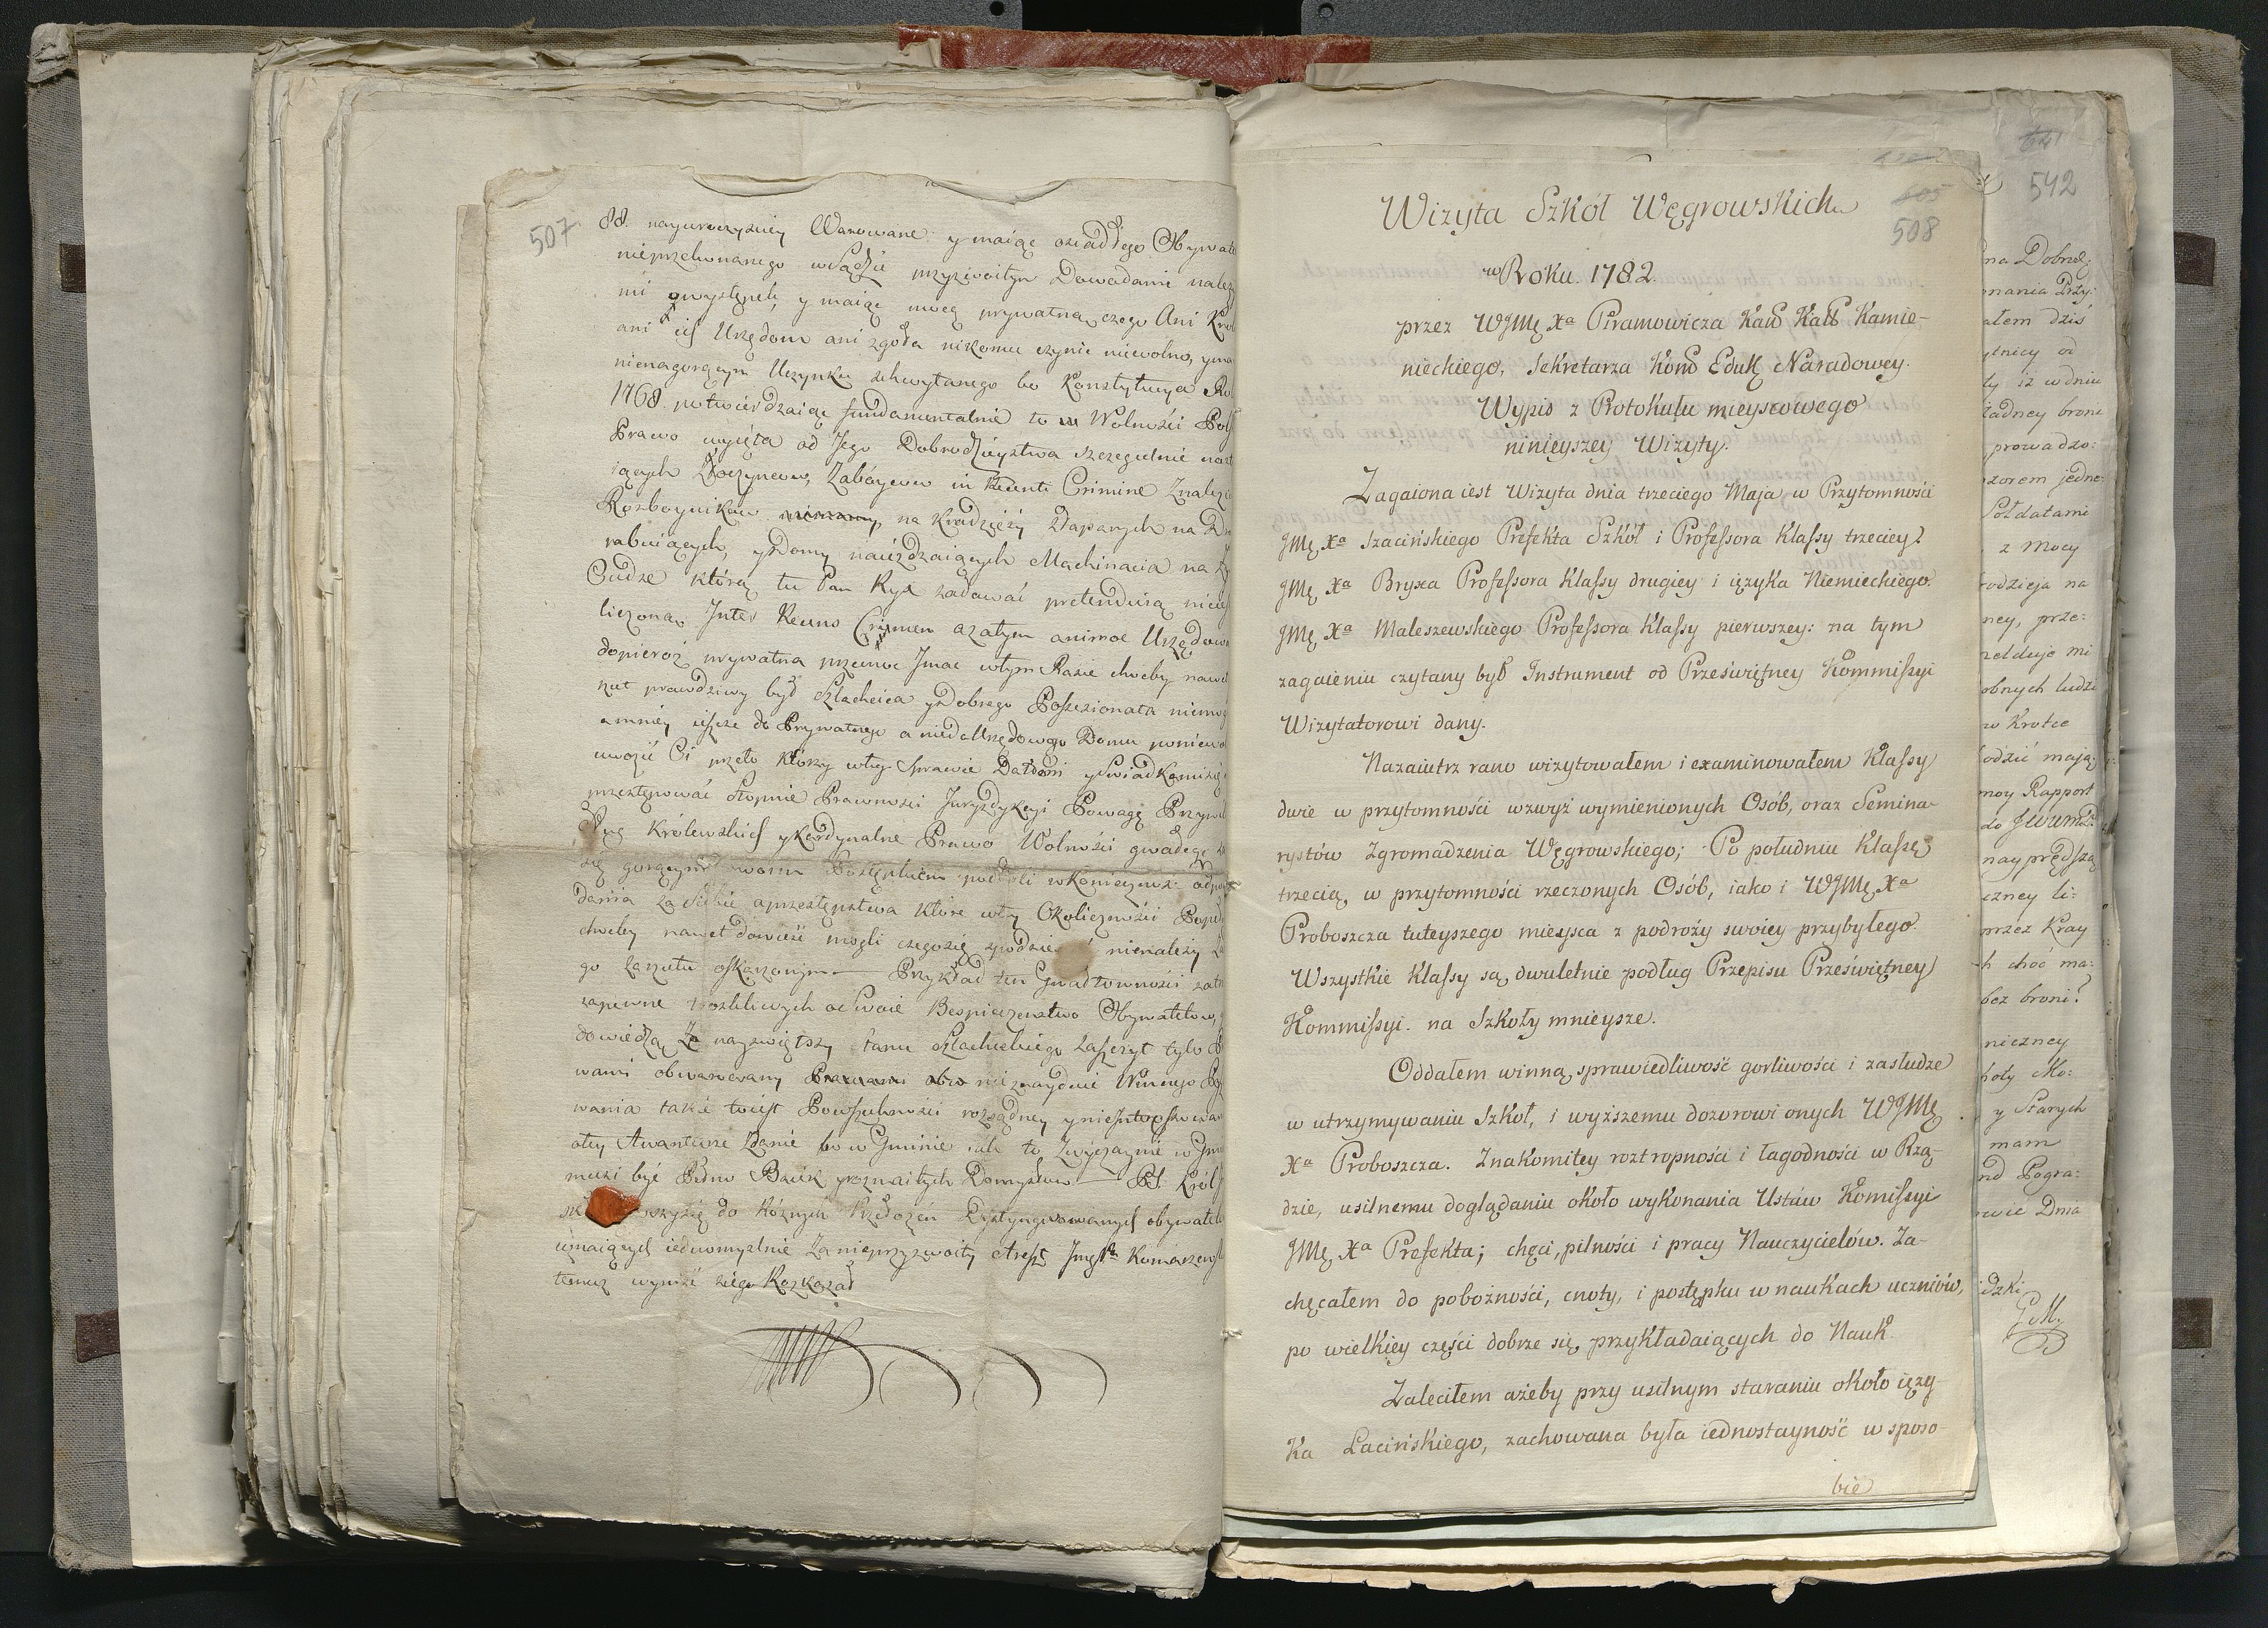 507
88. nayuroczyściey Warowane y maiąc osiadłego Obywate
nieprzekonanego wSądzie przyzwoitym Dowodami należy
mi owystępek, y maiąc mocą prywatną czego Ani Kró
ani ich Urzędom ani zgoła nikomu czynić niewolno, yma
nienagorącym Uczynku schwytanego bo Konstytucya Ro
1768. potwierdzaiąc fundamentalnie to Wolności Pols
Prawo wyięła od Jego Dobrodzieystwa szczegulnie nast
iących Złoczyncow, Zaboycow in Recenti Crimine Znalezi
Rozboynikow na Kradzieży złapanych na D
rabuiących, yDomy naieżdzaiących Machinacia na Ży
Cudze którą tu Pan Ryx zadawać pretenduią nies
liczona Inter Recens Crimen azatym animoc Urzędowa
dopieroż prywatna przemoc Imac wtym Razie choćby nawet
zut prawdziwy był Szlachcica yDobrego Possesionata niemog
amniey ieszcze do Prywatnego a niedoUrzędowego Domu poniewo
uwozić Ci przeto którzy wtey Sprawie
przestępować Stopnie Prawności Juryzdykcyi Powagę Przywi
Sług Królewskich ykardynalne Prawo Wolności
się gorącym swoim Postępkiem podali wKonieczność odpo
dania za Siebie aprzestępstwa które wtey Okoliczności Popeł
choćby nawet dowieść mogli czegosię nienależy Za
go zarzutu oskarzonym — Przykład ten Gwałtowności zatr
zapewne troskliwych oSwoie Bespieczenstwo Obywatelow,
dowiedzą Że nayświętszy Stanu Szlacheckiego Zaszczyt tylo P
wami obwarowany nieznayduie Winnego Po
wania takie toiest Powszechności rozsądney
otey Awanturze Zdanie bo w Gminie ale to Zwyczaynie w Gmi
musi być Pełno Baiek yroznaitych Domysłow — PS. Król
do Różnych Przełożeń Dystyngwowanych obywatelo
uznaiących iednomyślnie Za nieprzyzwoity Areszt Komarzewsk
temuz wyniść ziego Rozkazał
508
Wizyta Szkół Węgrowskich
w Roku. 1782.
przez WJMę Xa Piramowicza Kan Kat Kamie-
nieckiego, Sekretarza Kom Eduk Narodowey.
Wypis z Protokułu mieyscowego
ninieyszey Wizyty.
Zagaiona iest Wizyta dnia trzeciego Maja w Przytomności
JMę Xa Szacińskiego Prefekta Szkół i Professora Klassy trzeciey
JMę Xa Bryxa Professora Klassy drugiey i ięzyka Niemieckiego.
JMę Xa Maleszewskiego Professora Klassy pierwszey: na tym
zagaieniu czytany był Instrument od Przeświętney Kommissyi
Wizytatorowi dany.
Nazaiutrz rano wizytowałem i examinowałem Klassy
dwie w przytomności wzwyż wymienionych Osób, oraz Semina-
rystów Zgromadzenia Węgrowskiego; Po południu Klassę
trzecią, w przytomności rzeczonych Osób, iako i WJMę Xa
Proboszcza tuteyszego mieysca z podroży swoiey przybyłego.
Wszystkie Klassy są dwuletnie podług Przepisu Przeświętney
Kommissyi. na Szkoły mnieysze.
Oddałem winną sprawiedliwość gorliwości i zasłudze
w utrzymywaniu Szkoł, i wyższemu dozorowi onych WJMę
Xa Proboszcza. Znakomitey roztropności i łagodności w Rzą-
dzie, usilnemu doglądaniu około wykonania Ustaw Komissyi
JMę Xa Prefekta; chęci, pilności i pracy Nauczycielów. Za-
chęcałem do pobożności, cnoty, i postępku w naukach uczniów,
po wielkiey części dobrze się przykładaiących do Nauk.
Zaleciłem ażeby przy usilnym staraniu około ięzy-
ka Łacińskiego, zachowana była iednostayność w sposo-
bie
542
na Dobrodz:
nania Przy:
ałem dziś
ytnicy od
ły iż wdniu
żadney broni
prowadzo:
zorem jedne
Sołdatami
z Mocy
rodzieja na
ney, prze:
melduje mi
obnych ludzi
w Krotce
odzić mają
moy Rapport
do JWWmPa
nayprędszą
czney li:
przez Kray
h choć ma:
bez broni?
niczney
poły Mo:
y Starych
mam
nd Pogra:
wie Dnia
idzki
GM.